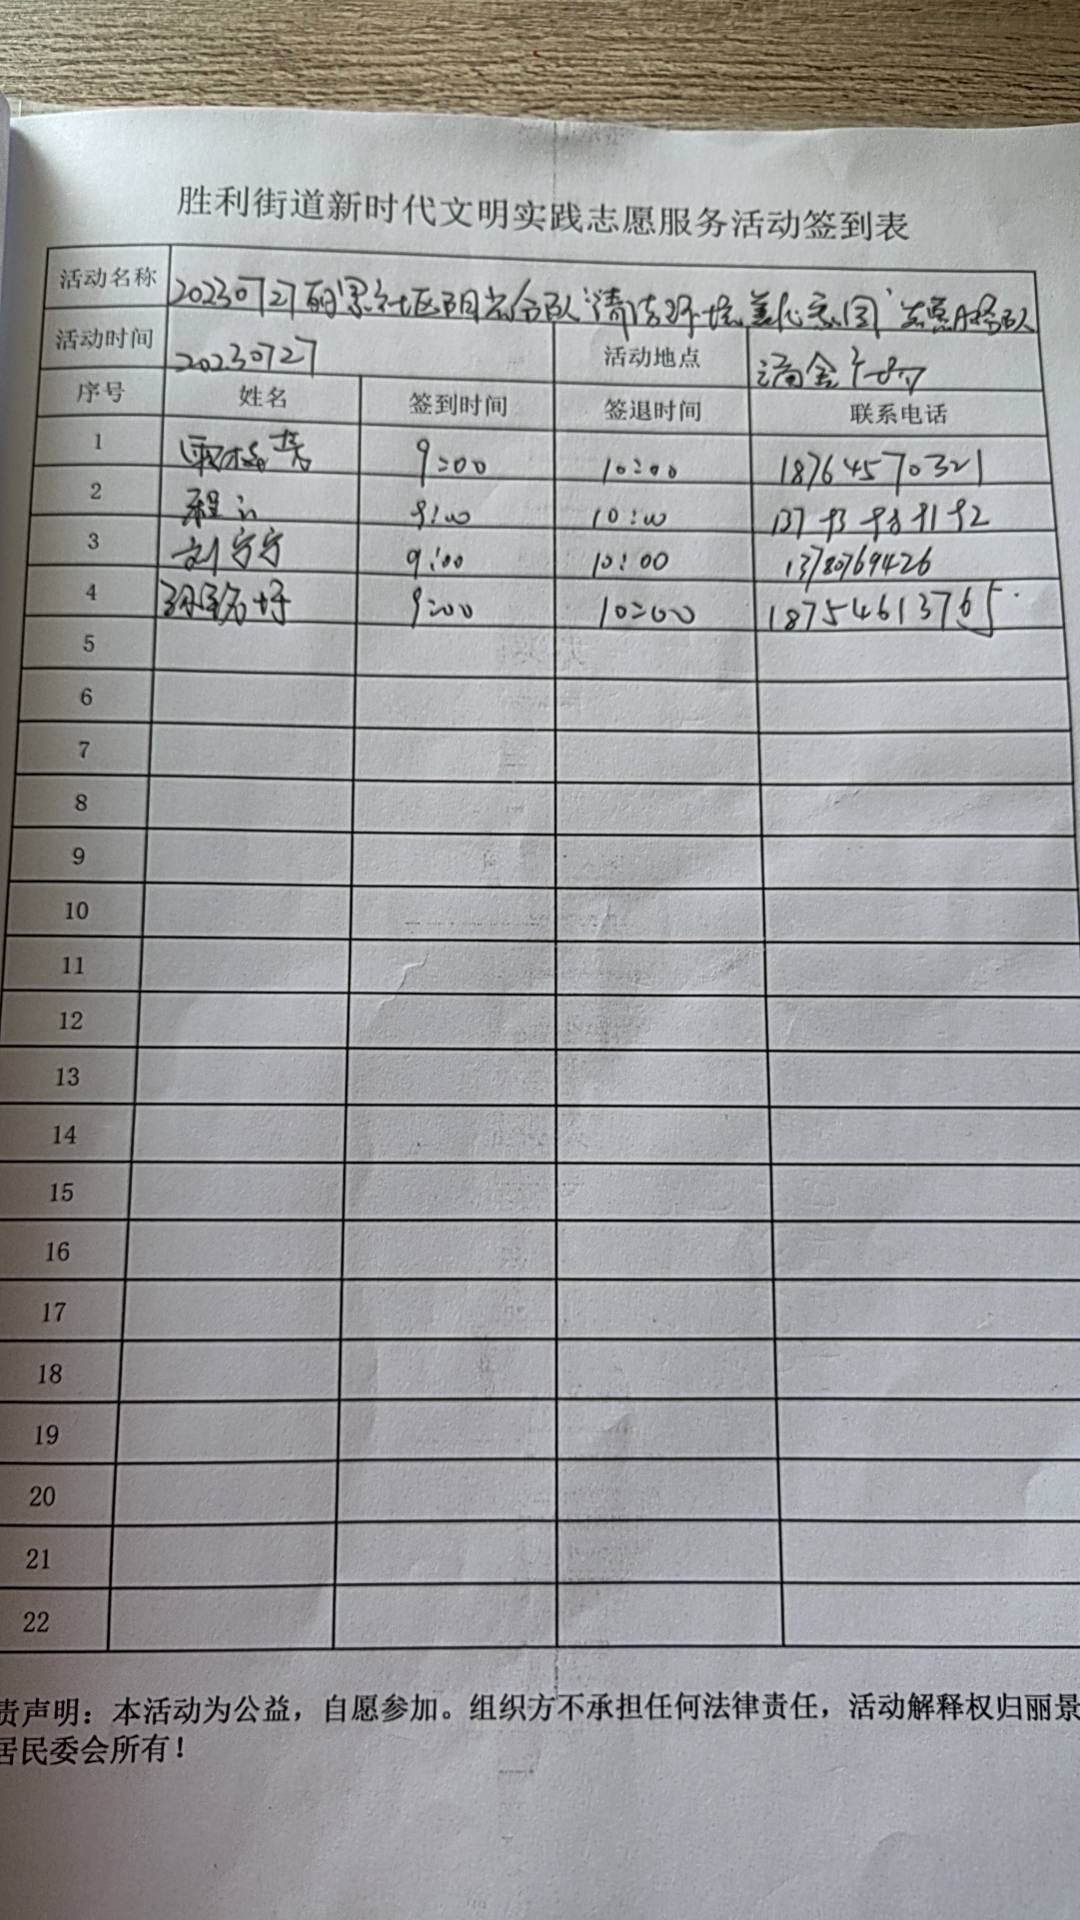 胜利街道新时代文明实践志愿服务活动签到表
活动名称 20230727丽景社区阳光分队"清洁环境美化家园"志愿服务队
活动时间 20230727 活动地点
序号 姓名 签到时间 签退时间 联系电话
1 9:00 10:00 18764570321
2 程 9:00 10:00 137
3 刘宁宁 9:00 10:00 13780769426
4 9:00 10:00 18754613765
5
6
7
8
9
10
11
12
13
14
15
16
17
18
19
20
21
22
责声明：本活动为公益，自愿参加。组织方不承担任何法律责任，活动解释权归丽景
居民委会所有！